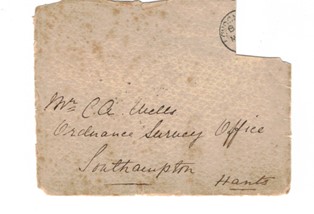 Mr C.A. Wells
Ordnance Survey Office
Southampton
Hants